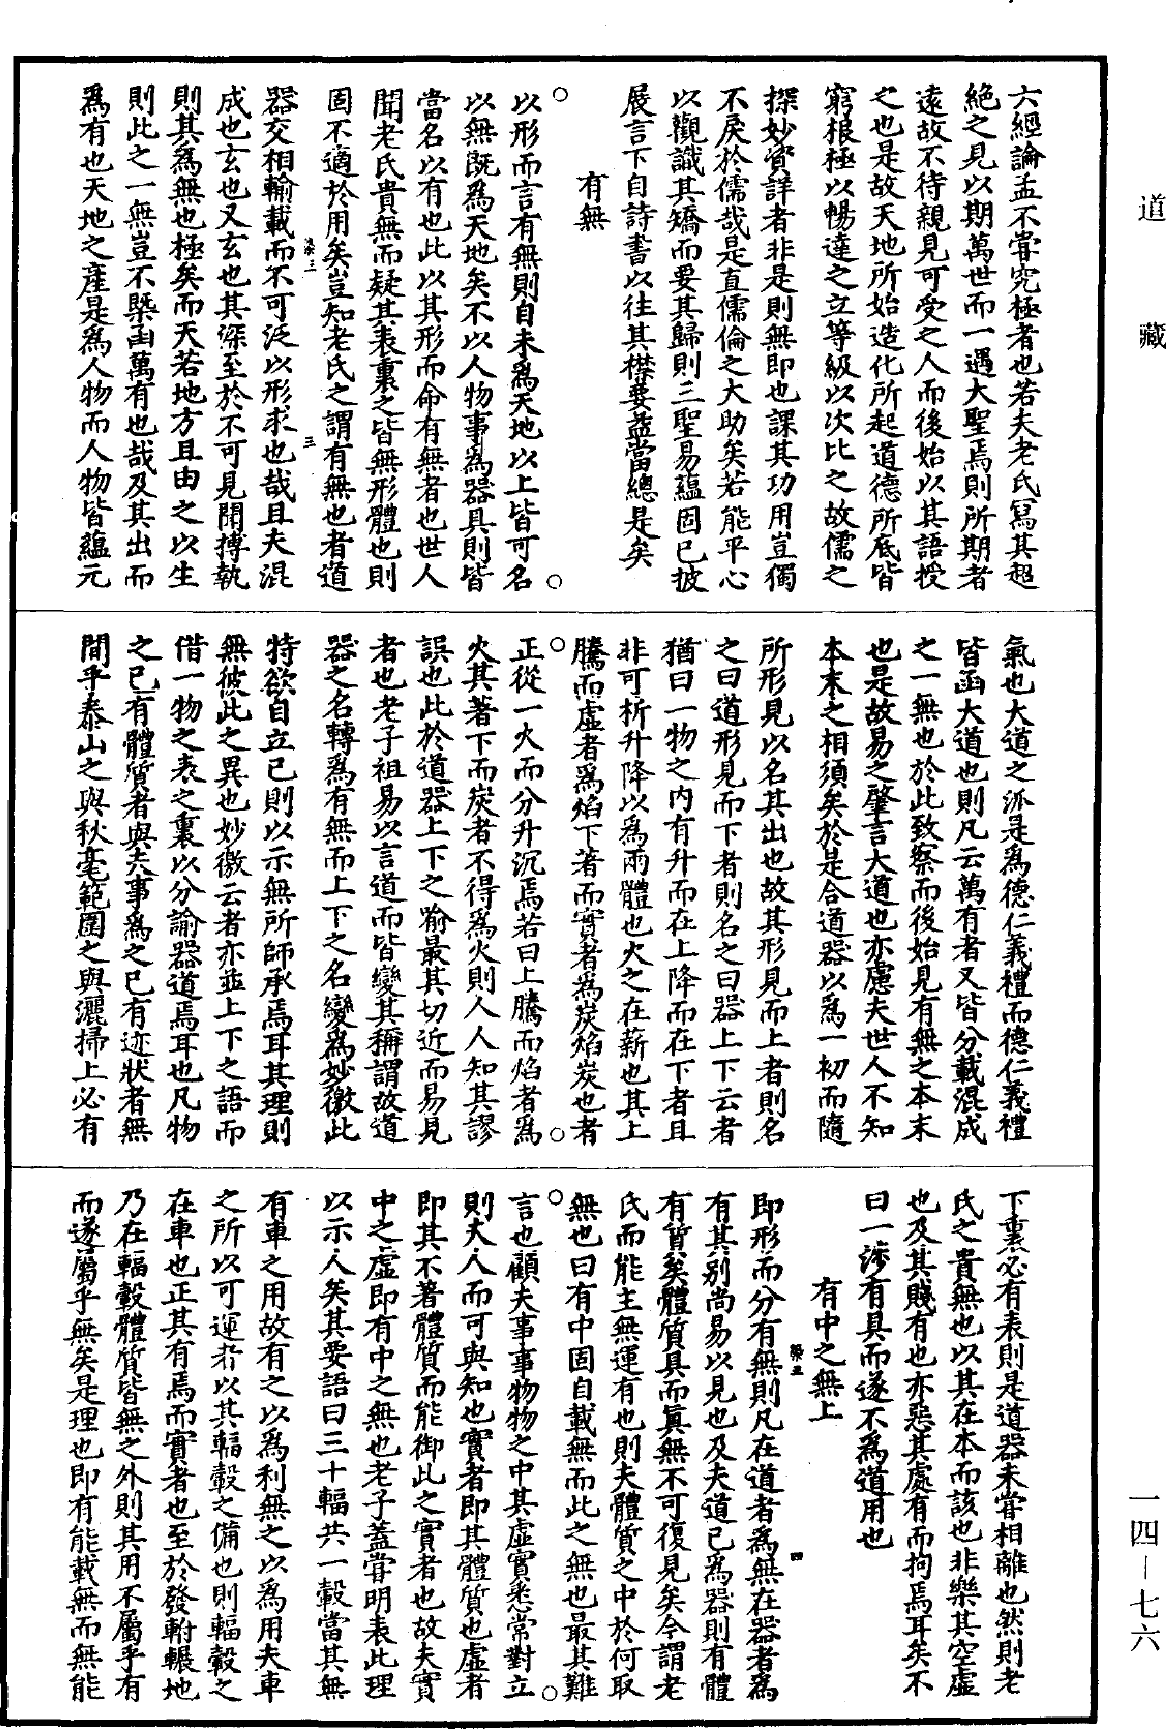 道藏
六經論孟不嘗究極者也若夫老氏寫其超
絶之見以期萬世而一遇大聖焉則所期者
遠故不待親見可受之人而後始以其語授
之也是故天地所始造化所起道德所底皆
窮根極以暢達之立等級以次比之故儒之
探妙賾詳者非是則無即也課其功用豈獨
不戾於儒哉是直儒倫之大助矣若能平心
以觀識其矯而要其歸則三聖易蘊固已披
展言下自詩書以往其襟要益當總是矣
有無
以形而言有無則自未爲天地以上皆可名
以無既爲天地矣不以人物事爲器具則皆
當名以有也此以其形而命有無者也世人
聞老氏貴無而疑其表裏之皆無形體也則
固不適於用矣豈知老氏之謂有無也者道
染三
三
器交相輸載而不可泛以形求也哉且夫混
成也玄也又玄也其深至於不可見聞摶執
則其爲無也極矣而天若地方且由之以生
則此之一無豈不槩函萬有也哉及其出而
爲有也天地之產是爲人物而人物皆蘊元
氣也大道之派是爲德仁義禮而德仁義禮
皆函大道也則凡云萬有者又皆分載混成
之一無也於此致察而後始見有無之本末
也是故易之肇言大道也亦慮夫世人不知
本末之相須矣於是合道器以爲一初而隨
所形見以名其出也故其形見而上者則名
之曰道形見而下者則名之曰器上下云者
猶曰一物之內有升而在上降而在下者且
非可析升降以爲兩體也火之在薪也其上
騰而虚者爲焰下著而實者爲炭焰炭也者
正從一火而分升沉焉若曰上騰而焰者爲
火其著下而炭者不得爲火則人人知其謬
誤也此於道器上下之喻最其切近而易見
者也老子祖易以言道而皆變其稱謂故道
器之名轉爲有無而上下之名變爲妙徼此
特欲自立已則以示無所師承焉耳其理則
無彼此之異也妙徼云者亦並上下之語而
借一物之表之裏以分諭器道焉耳也凡物
之已有體質者與夫事爲之已有迹狀者無
間乎泰山之與秋毫範圍之與灑掃上必有
下裏必有表則是道器未嘗相離也然則老
氏之貴無也以其在本而該也非樂其空虚
也及其賤有也亦惡其處有而拘焉耳矣不
曰一涉有具而遂不爲道用也
有中之無上
染三
四
即形而分有無則凡在道者爲無在器者爲
有其别尚易以見也及夫道已爲器則有體
有質矣體質具而眞無不可復見矣今謂老
氏而能主無運有也則夫體質之中於何取
無也曰有中固自載無而此之無也最其難
言也顧夫事事物物之中其虚實悉常對立
則夫人而可與知也實者即其體質也虚者
即其不著體質而能御此之實者也故夫實
中之虚即有中之無也老子蓋嘗明表此理
以示人矣其要語曰三十輻共一轂當其無
有車之用故有之以爲利無之以爲用夫車
之所以可運者以其輻轂之備也則輻轂之
在車也正其有焉而實者也至於發軵輾地
乃在輻轂體質皆無之外則其用不屬乎有
而遂屬乎無矣是理也即有能載無而無能
一四—七六